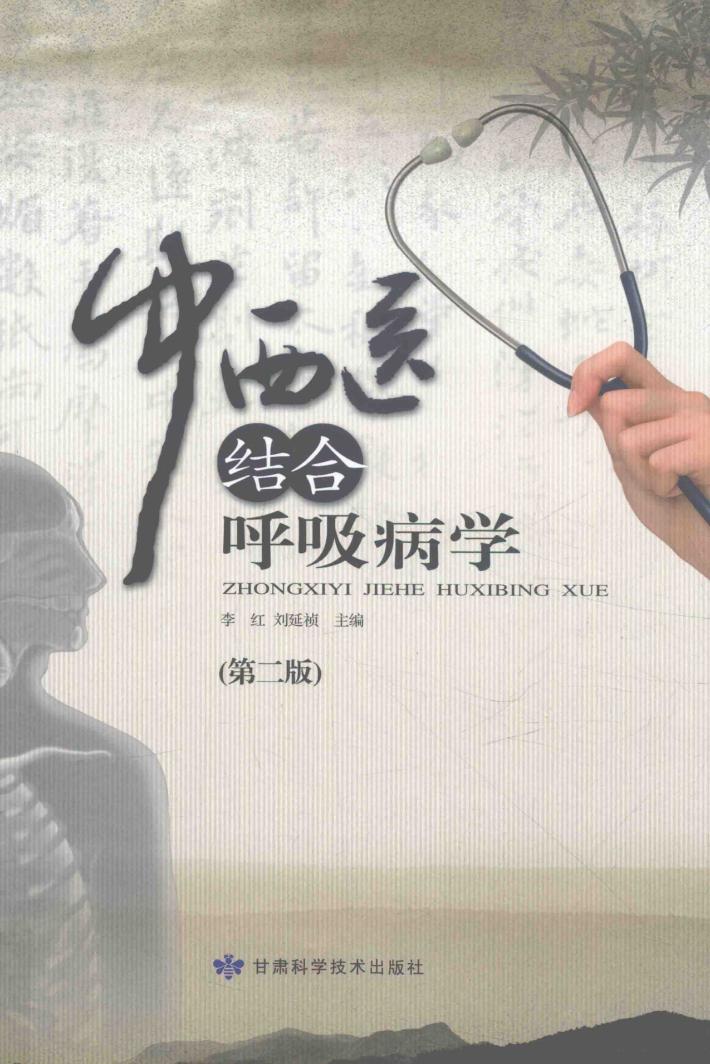 中西医
结合
呼吸病学
ZHONGXIYI JIEHE HUXIBING XUE
李 红 刘延祯 主编
(第二版)
甘肃科学技术出版社